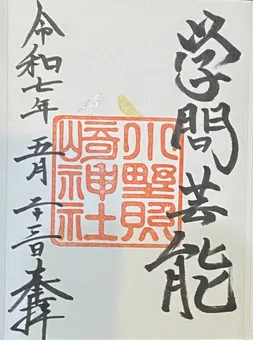 学問芸能
小野照
崎神社
令和七年五月二十三日奉拝